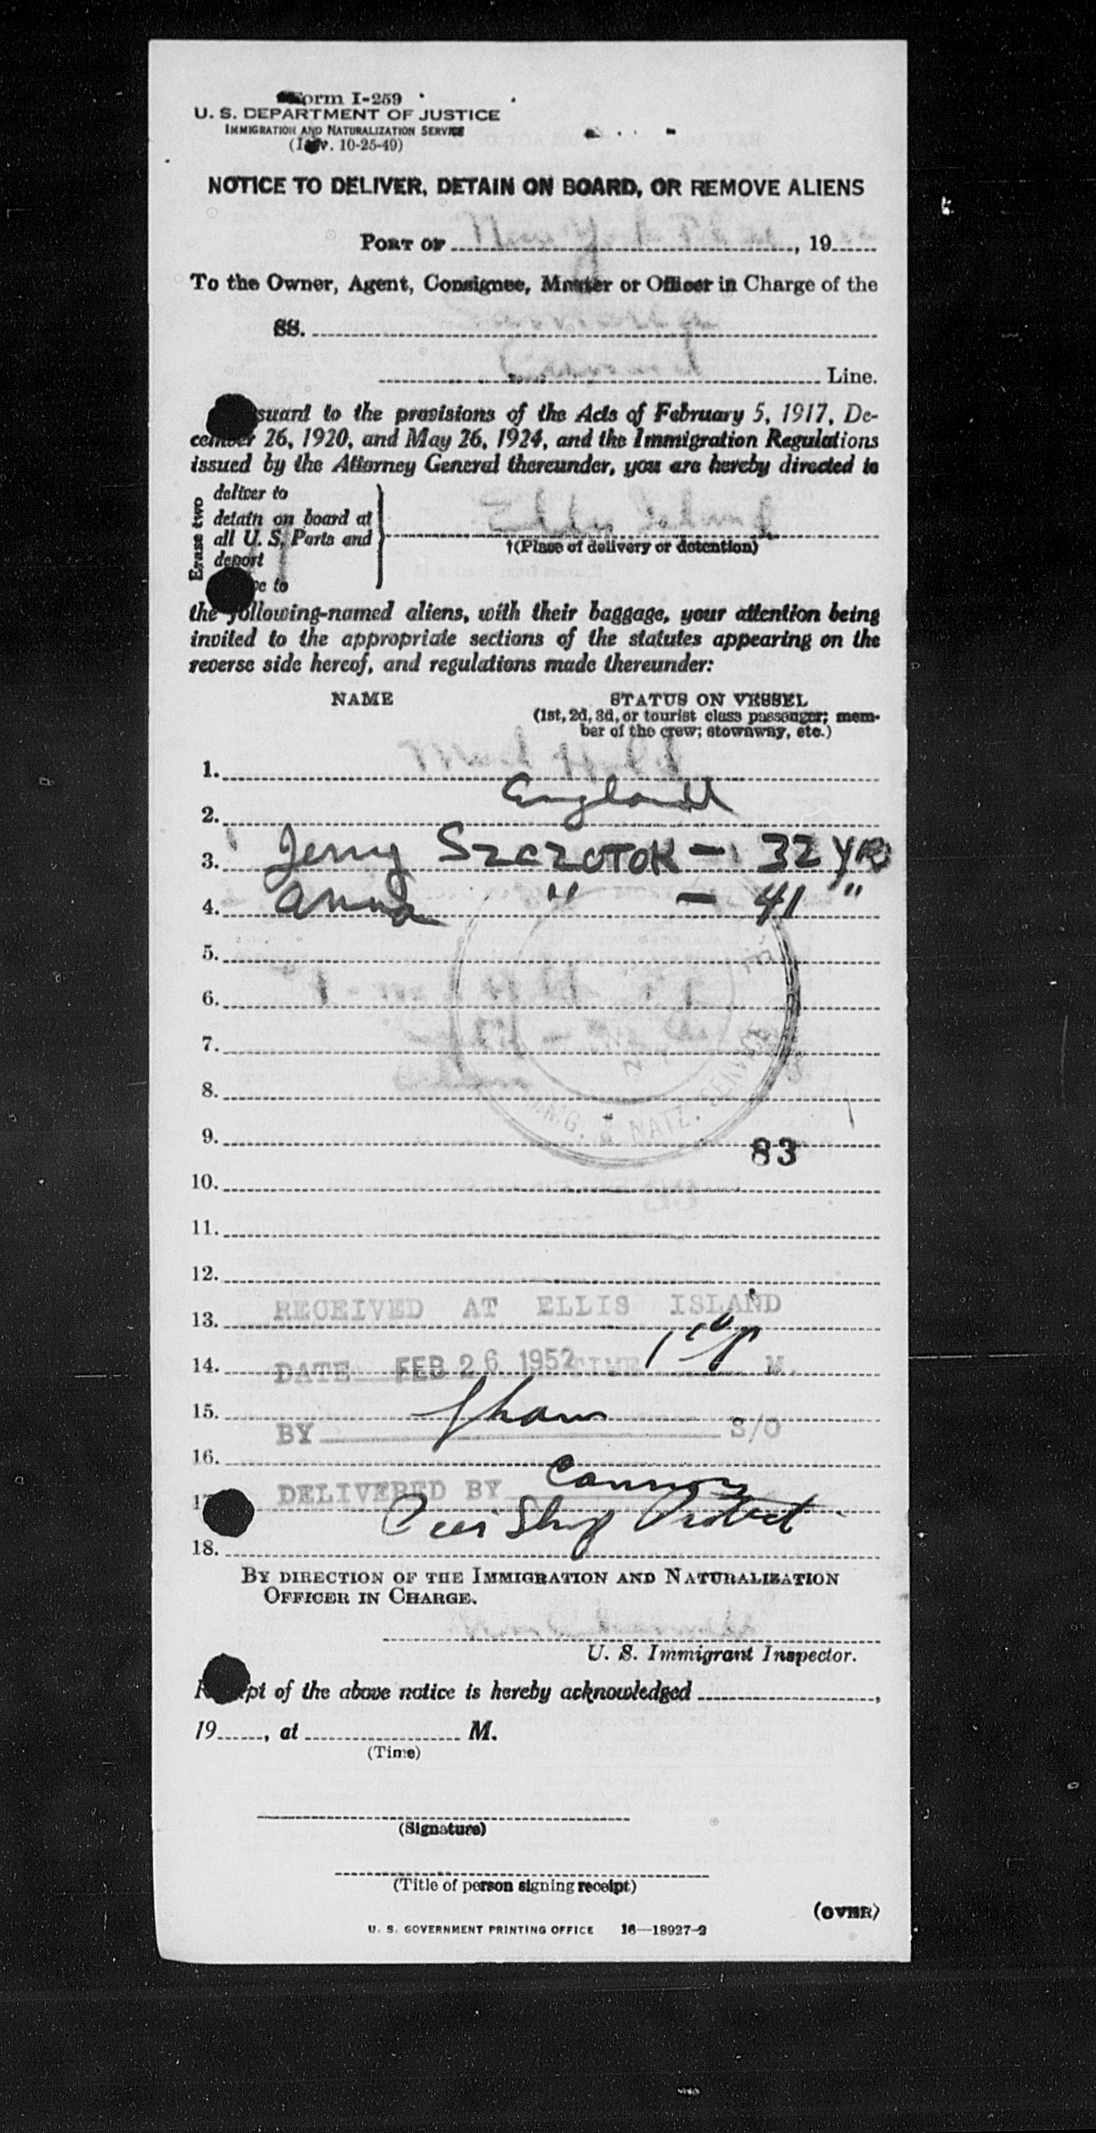 Form I-259
U. S. DEPARTMENT OF JUSTICE
IMMIGRATION AND NATURALIZATION SERVICE
(Rev. 10-25-49)
NOTICE TO DELIVER, DETAIN ON BOARD, OR REMOVE ALIENS
PORT OF , 19
To the Owner, Agent, Consignee, Master or Officer in Charge of the
SS.
Line.
suant to the provisions of the Acts of February 5, 1917, De-
cember 26, 1920, and May 26, 1924, and the Immigration Regulations
issued by the Attorney General thereunder, you are hereby directed to
Erase two
deliver to
detain on board at
all U. S. Ports and
deport
to
Ellis Island
†(Place of delivery or detention)
the following-named aliens, with their baggage, your attention being
invited to the appropriate sections of the statutes appearing on the
reverse side hereof, and regulations made thereunder:
NAME STATUS ON VESSEL
(1st, 2d, 3d, or tourist class passenger; mem-
ber of the crew; stowaway, etc.)
1.
England
2.
3. Jerry SZCZOTOK - 32 YRS
4. Anna " - 41 "
5.
6.
7.
8.
& NATZ. SERVICE
9. 83
10.
11.
12.
RECEIVED AT ELLIS ISLAND
13.
14. DATE FEB 26 1952 TIME M.
15. Shaw
BY S/O
16.
DELIVERED BY Connor
17 Ship
18.
BY DIRECTION OF THE IMMIGRATION AND NATURALIZATION
OFFICER IN CHARGE.
U. S. Immigrant Inspector.
Receipt of the above notice is hereby acknowledged ,
19 , at M.
(Time)
(Signature)
(Title of person signing receipt)
(OVER)
U. S. GOVERNMENT PRINTING OFFICE 16—18927-2